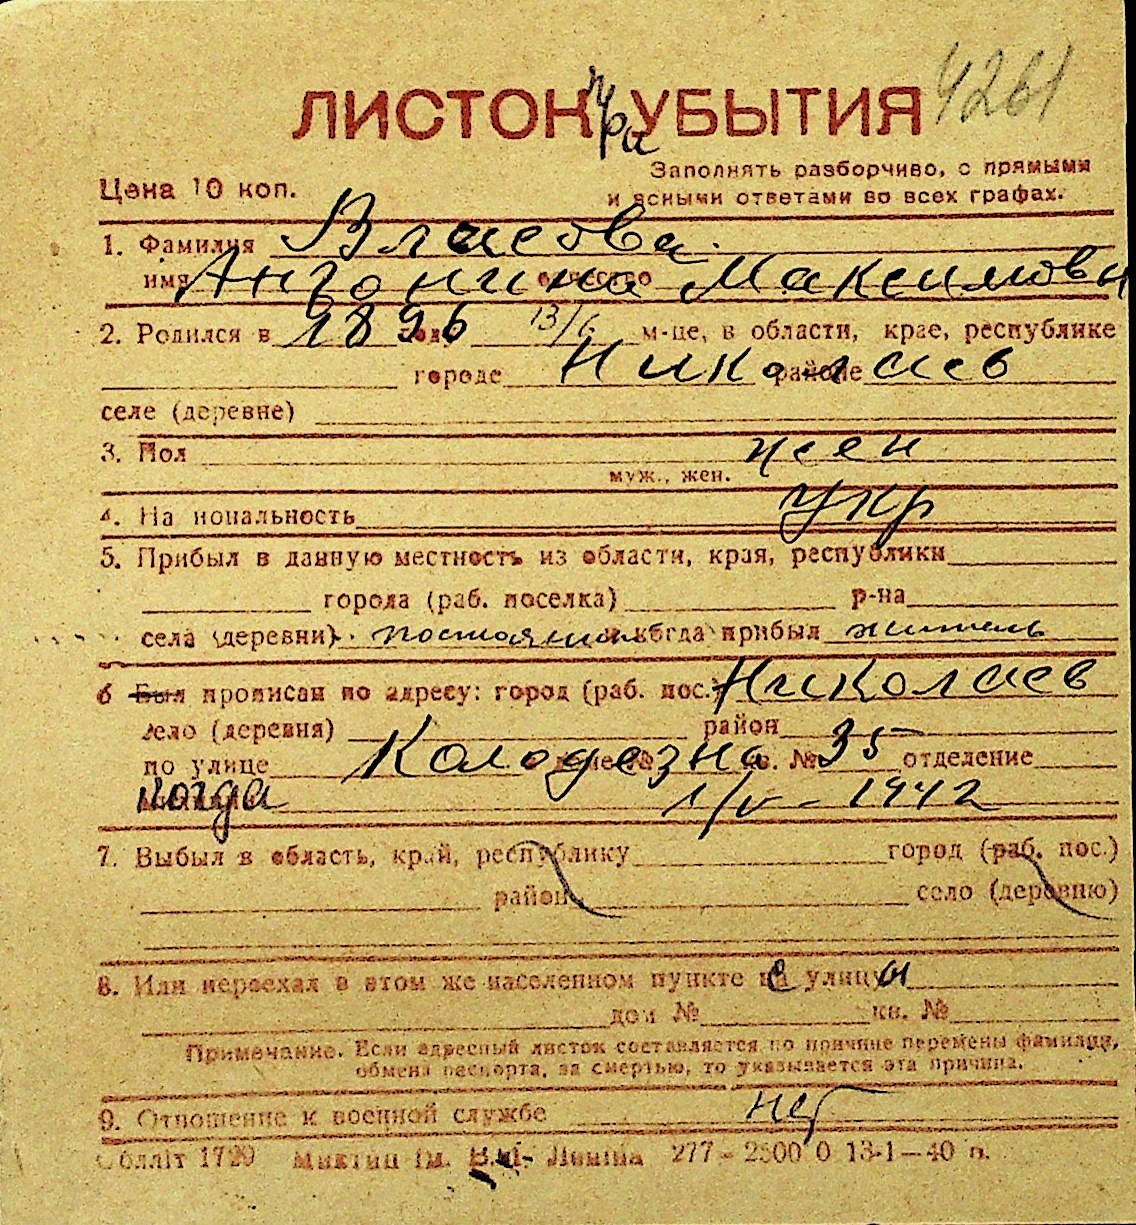 ЛИСТОК УБЫТИЯ 4261
Заполнять разборчиво, с прямыми
Цена 10 коп. и ясными ответами во всех графах.
1. Фамилия Власова
имя Антонина отчество Максимовн
2. Родился в 1896 году 13/6 м-це, в области, крае, республике
городе Николаев районе
селе (деревне)
3. Пол жен
муж., жен.
4. На нональность укр
5. Прибыл в данную местность из области, края, республики
города (раб. поселка) р-на
села (деревни) постоянный и когда прибыл житель
6 Был прописан по адресу: город (раб. пос.) Николаев
село (деревня) район
по улице Колодезна кв. № 35 отделение
когда 1/V - 1942
7. Выбыл в область, край, республику город (раб. пос.)
район село (деревню)
8. Или переехал в этом же населенном пункте с улицы
дом № кв. №
Примечание. Если адресный листок составляется по причине перемены фамилии,
обмена паспорта, за смертью, то указывается эта причина.
9. Отношение к военной службе нет
Облліт 1729 ім. В.И. Леніна 277 - 2500 0 13-1-40 п.